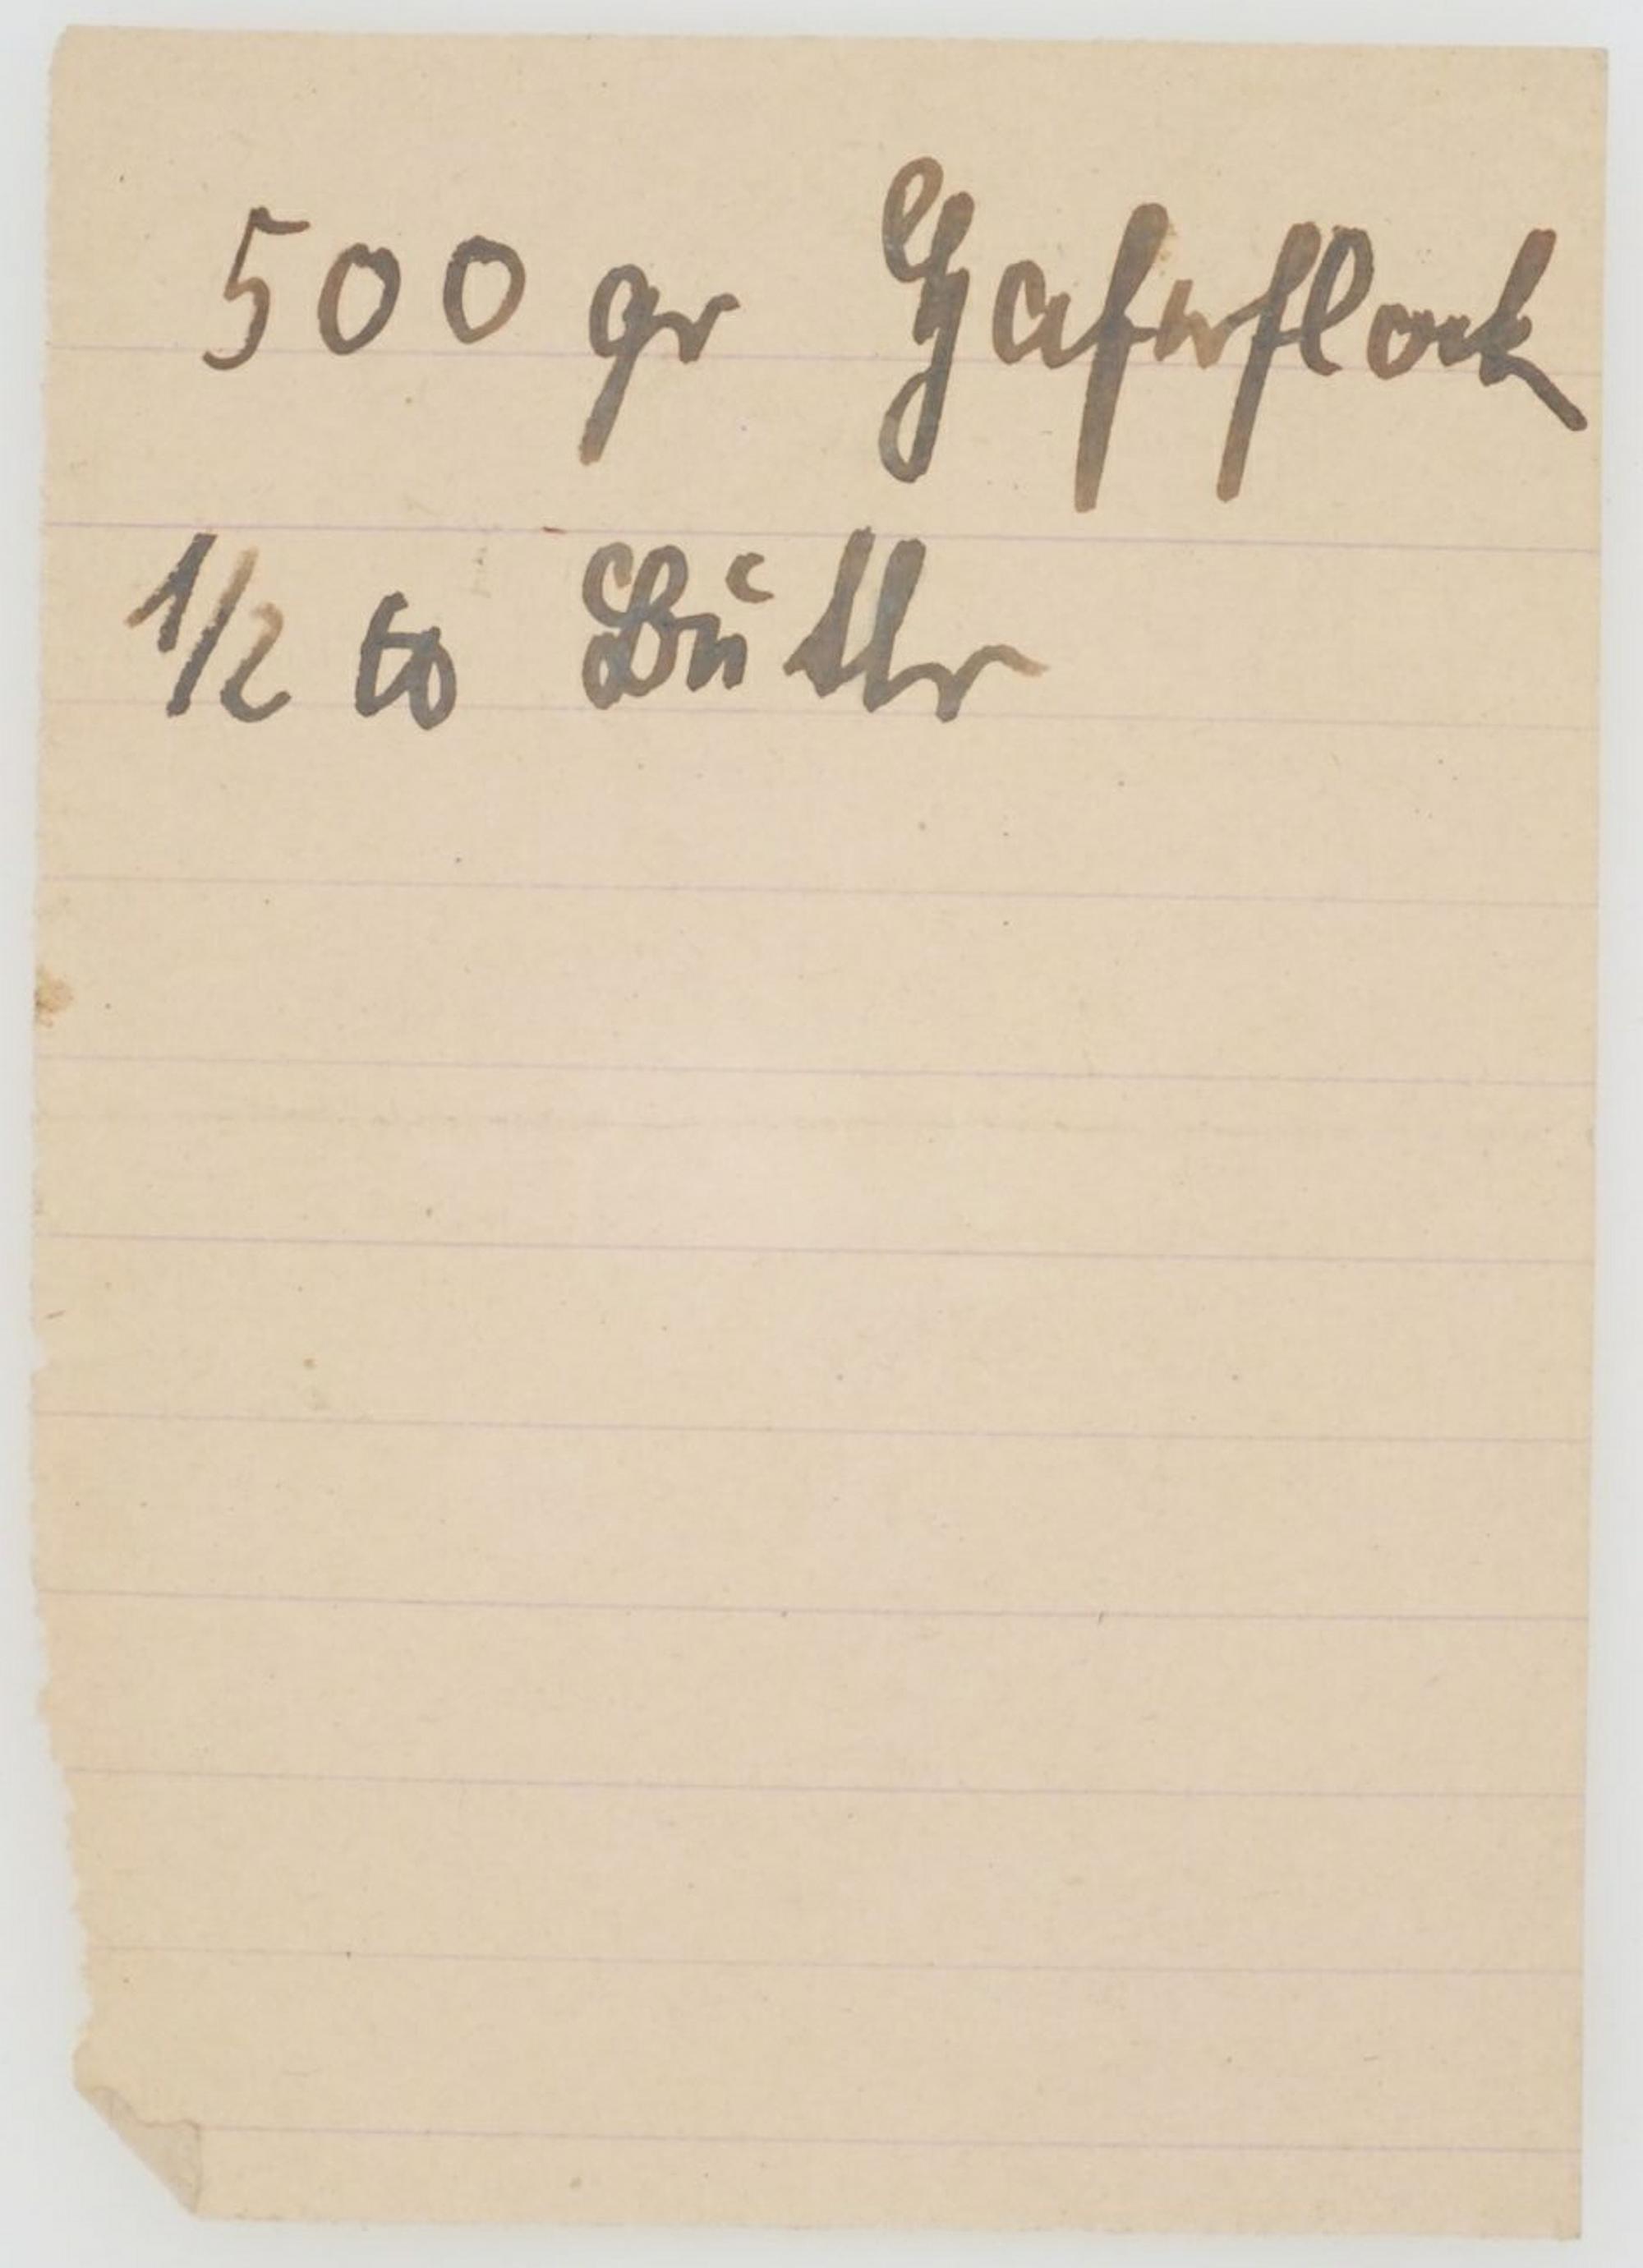 500 gr Haferflock
1/2 ℔ Butter